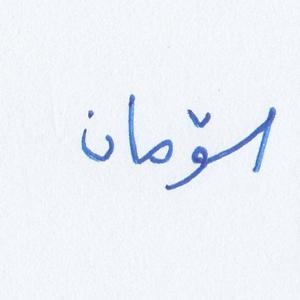 اسۆمان